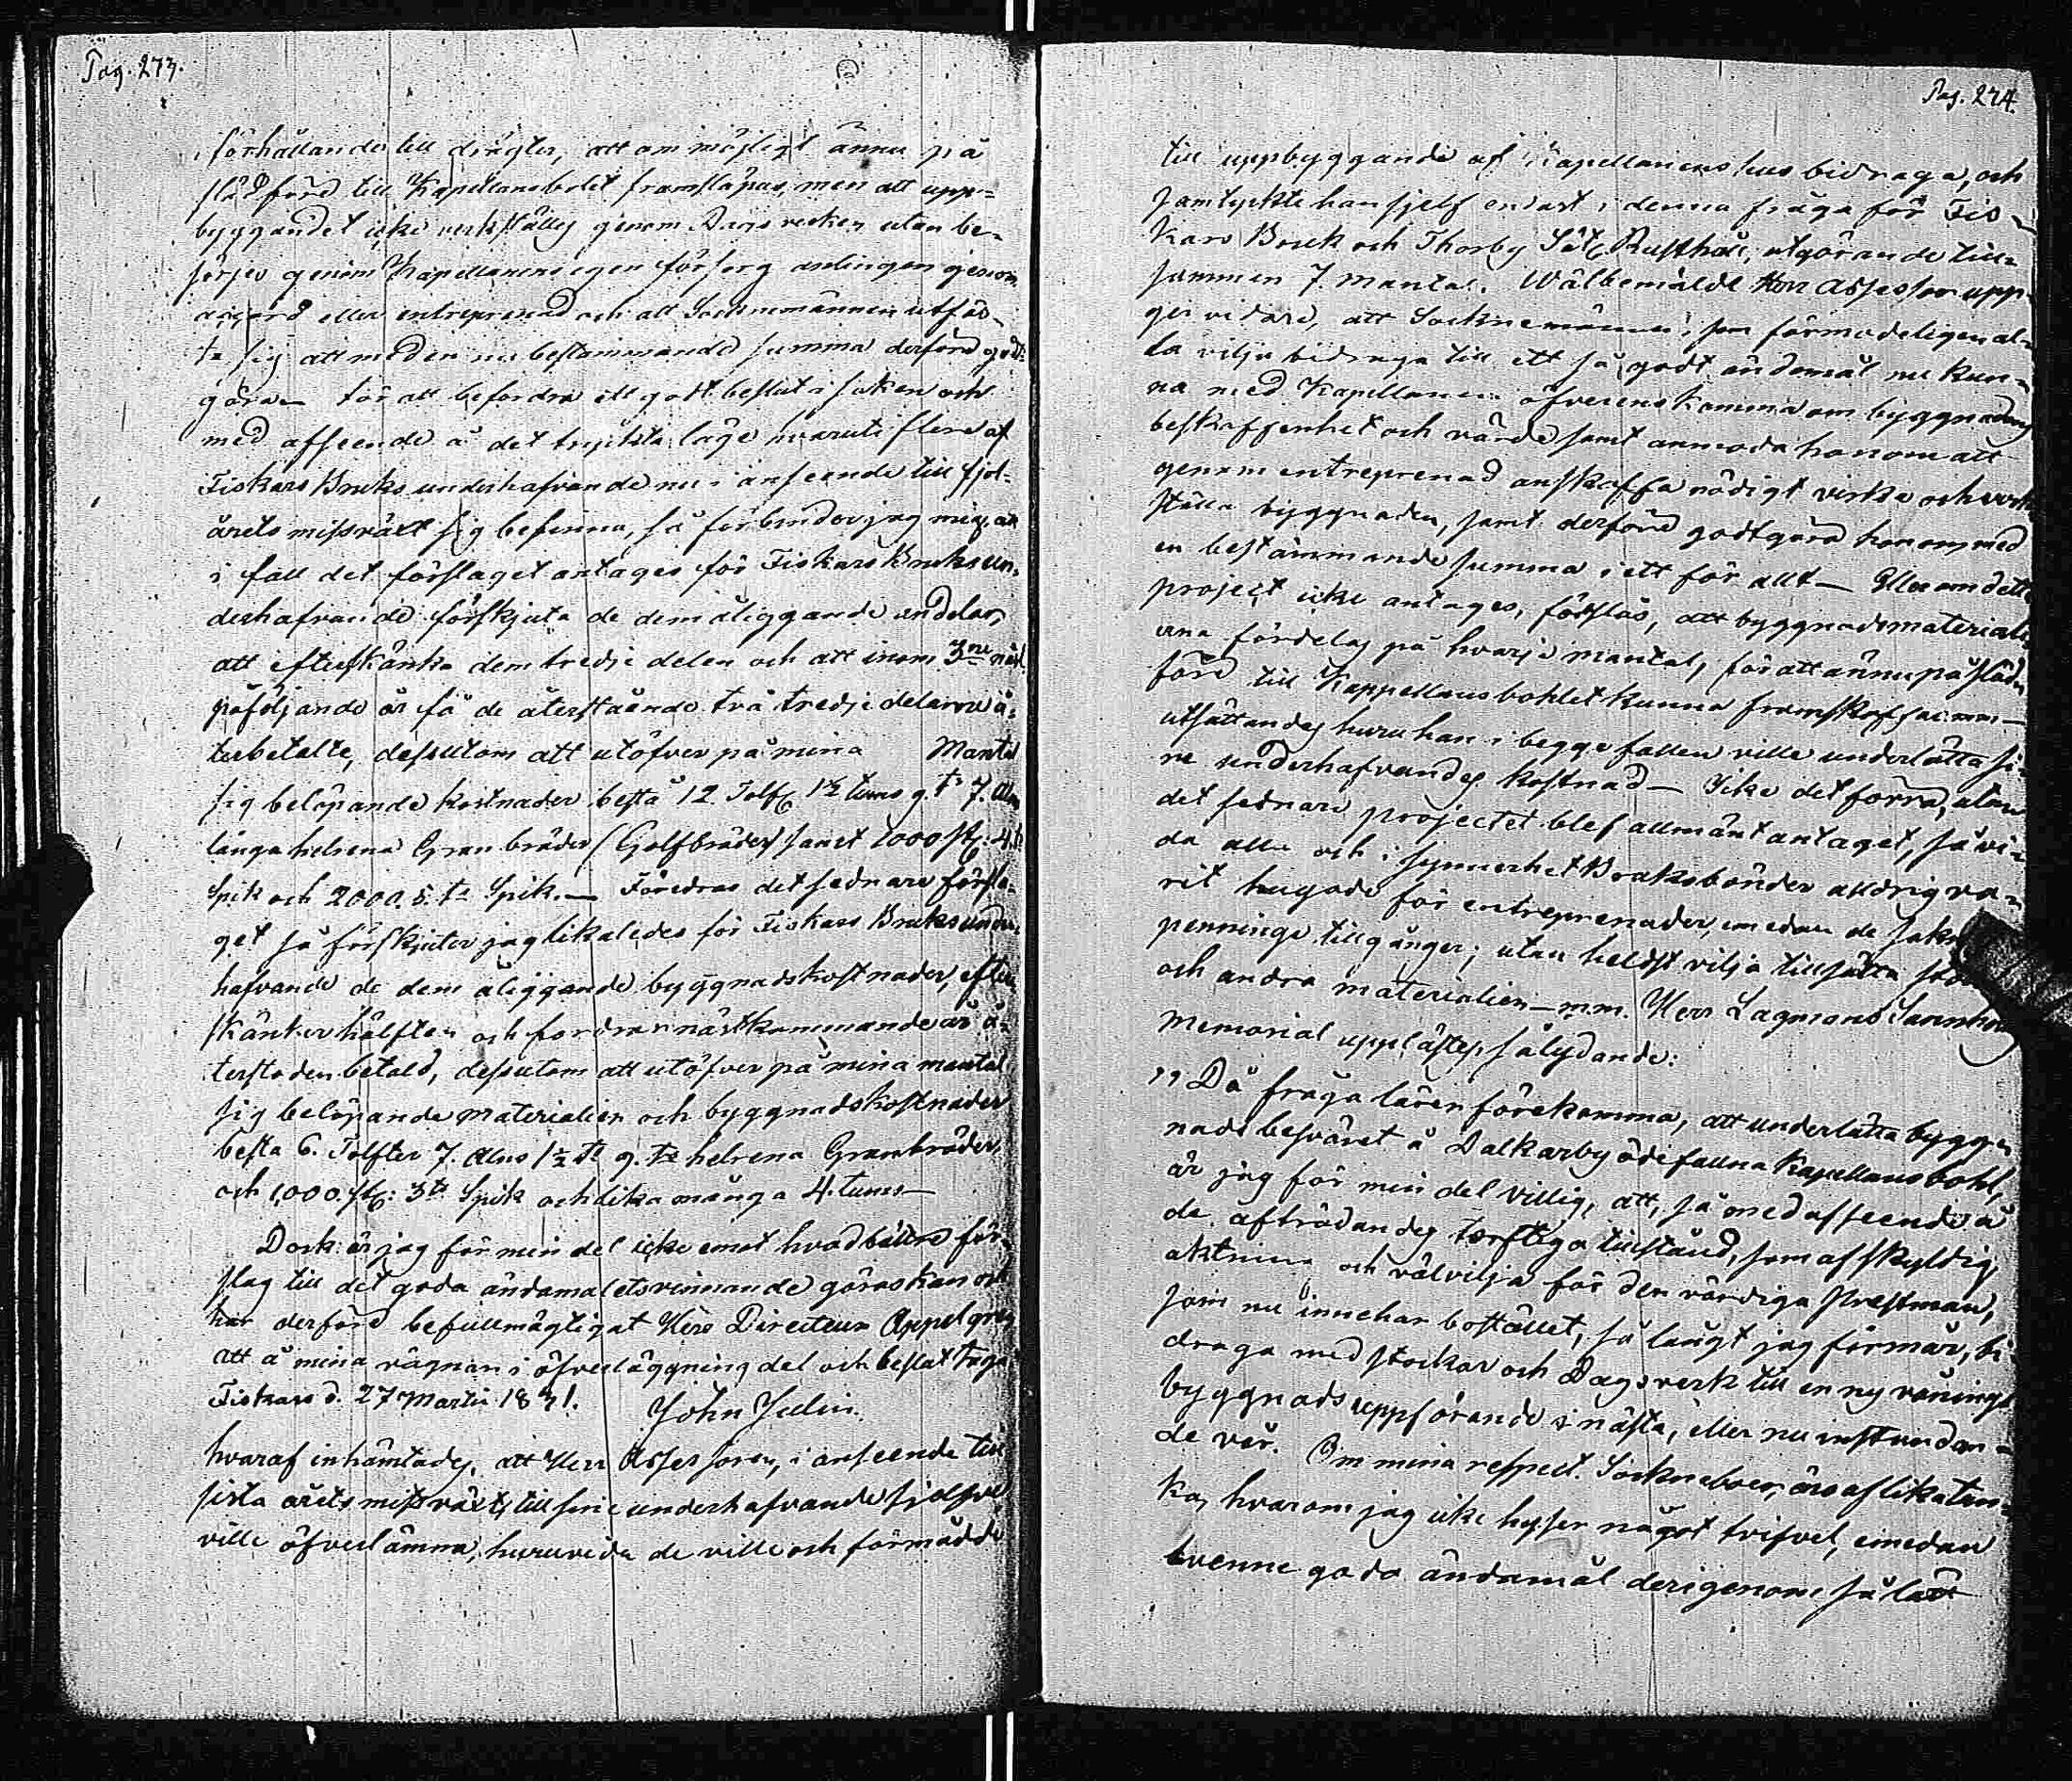 Pag. 273.
i förhållande till drägter, att om möjligt ännu på
slädföre till Kapellansbolet framsläpas, men att upp-
byggandet icke verkställes genom Dagsverken utan be-
sörjes genom Kapellanens egen försorg antingen genom
accord eller entreprenad och att Socknemännen utfäs-
te sig att med en nu bestämmande summa derföre godt-
göra — För att befordra ett godt beslut i saken och
med afseende å det tryckta läge hvaruti flere af
Fiskars Bruks underhafvande nu i anseende till fjol-
årets missväxt sig befinna, så förbinder jag mig, att
i fall det förslaget antages för Fiskars Bruks un-
derhafvande förskjuta de dem åliggande andelar,
att efterskänka dem tredje delen och att inom 3ne näst
påföljande år få de återstående två tredje delarne å-
terbetalte, dessutom att utöfver på mina Mantal
sig belöpande kostnader bestå 12 Tolft 1½ tums g. ts 7. Aln
långa helrena Gran bräder (Golfbräder) samt 1000 st. 4 t.
Spik och 2000. 5. ts Spik. — Föredras det sednare försla-
get så förskjuter jag likaledes för Fiskars Bruks under-
hafvande de dem åliggande byggnadskostnader, efter
skänker hälften och fordrar nästkommande år å-
terstoden betald, dessutom att utöfver på mina mantal
sig belöpande materialier och byggnadskostnader
bestå 6. Tolfter 7. Alns 1½ ts g. ts helrena Granbräder,
och 1,000. st: 3ts Spik och lika många 4. tums —
Dock är jag för min del icke emot hvad bättre för-
slag till det goda ändamålets vinnande göras kan och
har derföre befullmägtigat Herr Directeur Appelgren
att å mina vägnar i öfverläggning del och beslut taga
Fiskars d. 27 Martii 1831. John Julin.
hvaraf inhämtades, att Herr Assessoren, i anseende till
sista årets missväxt, till sine underhafvande sjelfve
ville öfverlämna, huruvida de ville och förmådde
Pag. 274.
till uppbyggande af Kapellanens hus bidraga, och
samtyckte han sjelf endast i denna fråga för Fis-
kars Bruk och Thorby Sät. Rusthåll, utgörande till-
samman 7. mantal. Wälbemälde Herr Assessor upp-
ger vidare, att Socknemännen, som förmodeligen al-
la vilja bidraga till ett så godt ändamål nu kun-
na med Kapellanen öfverenskomma om byggnadens
beskaffenhet och värde samt anmoda honom att
genom entreprenad anskaffa nödigt virke och verk-
ställa byggnaden, samt derföre godtgöra honom med
en bestämmande summa i ett för allt — Eller om detta
project icke antages, förslås, att byggnadsmateriali-
erna fördelas på hvarje mantal, för att ännu på släd-
före till Kappellansbohlet kunna framskaffas m.m. —
utsättandes huru han i begge fallen ville underlätta si-
ne underhafvandes kostnad — Icke det förra, utan
det sednare projectet blef allmänt antaget, så vi-
da alla och i synnerhet Bruksbönder alldrig va-
rit hugade för entreprenader, emedan de sakna
penninge tillgångar; utan heldst vilja tillsätta stock
och andra materialier — m.m. Herr Lagmans
Memorial upplästes, så lydande:
"Då fråga lärer förekomma, att underlätta bygg-
nads besväret å Dalkarby ödefallna Kapellansbohl,
är jag för min del villig, att, så med afseende å
de afträdandes torftiga tillstånd, som af skyldig
aktning och välvilja för den värdiga Prestman,
som nu innehar boställlet, så långt jag förmår, bi-
draga med stockar och Dagsverk till en ny vånings
byggnads uppförande i nästa, eller nu instundan-
de vår. Om mina respect. Socknebor, äro af lika tan-
ka, hvarom jag icke hyser något tvifvel, emedan
tvenne goda ändamål derigenom så lätt